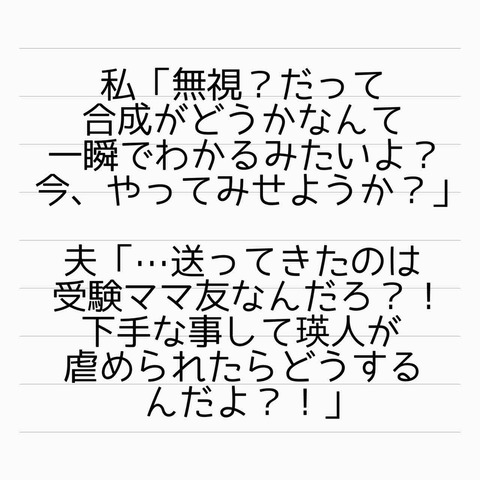 私「無視？だって
合成がどうかなんて
一瞬でわかるみたいよ？
今、やってみせようか？」
夫「…送ってきたのは
受験ママ友なんだろ？！
下手な事して瑛人が
虐められたらどうする
んだよ？！」